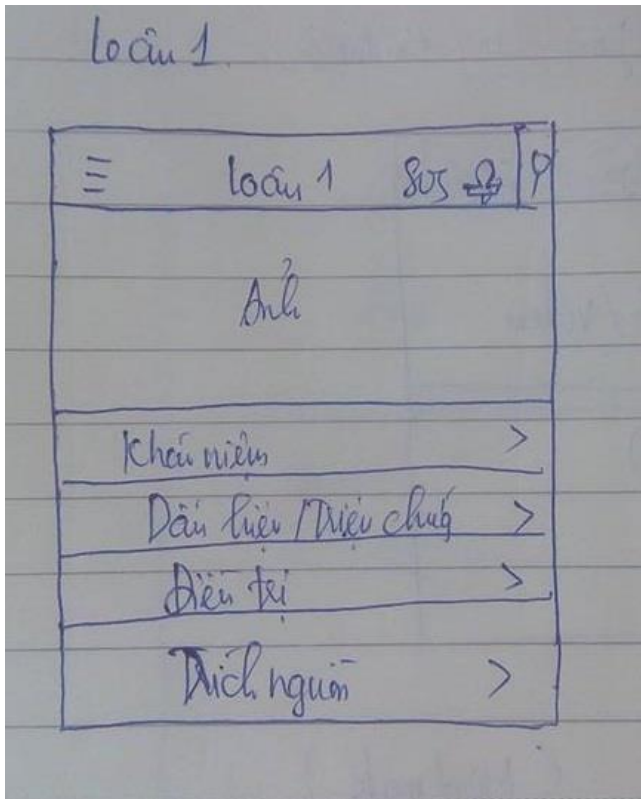 loại 1
loại 1 SOS
Ảnh
Khái niệm >
Dấu hiệu / Triệu chứng >
Điều trị >
Trích nguồn >